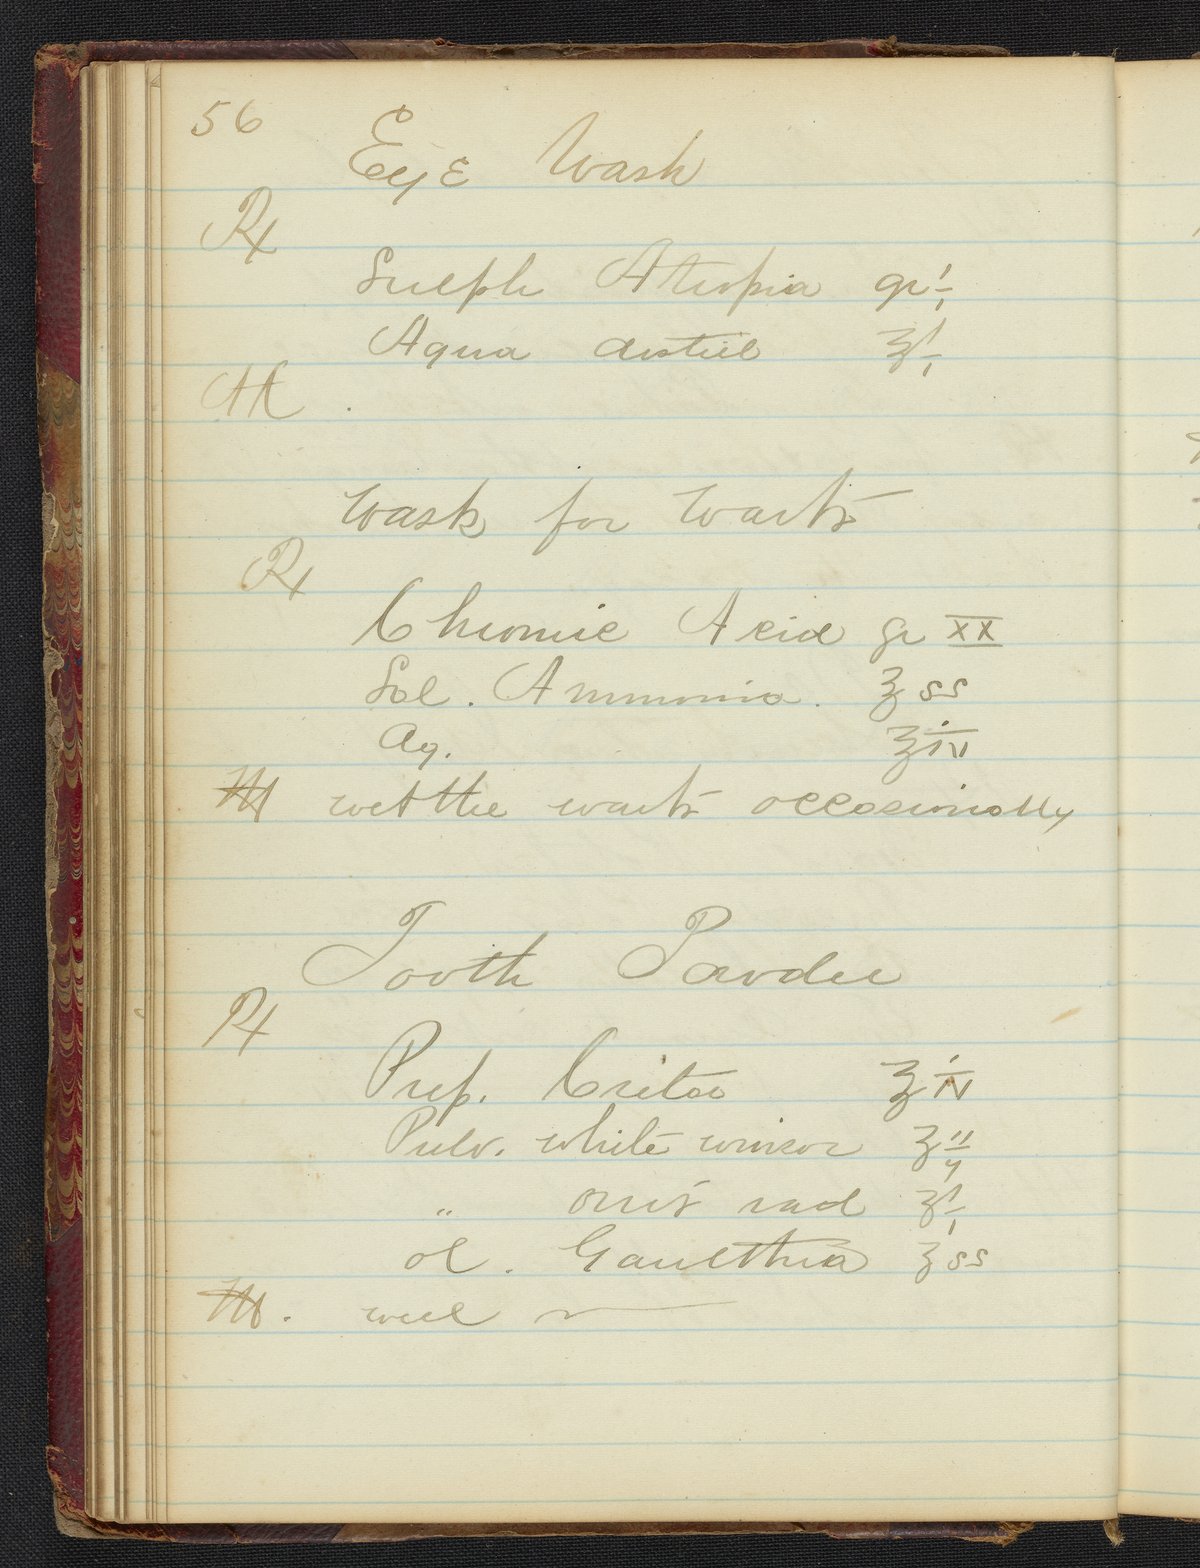 56
Eye Wash
℞
Sulph Atropia gr i
Aqua distill ℥ i
M .
Wash for Warts
℞
Chromic Acid gr XX
Sol. Ammonia. ℥ ss
Aq. ℥ iv
M wet the warts occasionally
Tooth Powder
℞
Prep. Creta ℥ iv
Pulv. white ℥ ii
" orris rad ℥ i
ol. Gaultheria ʒ ss
M. well